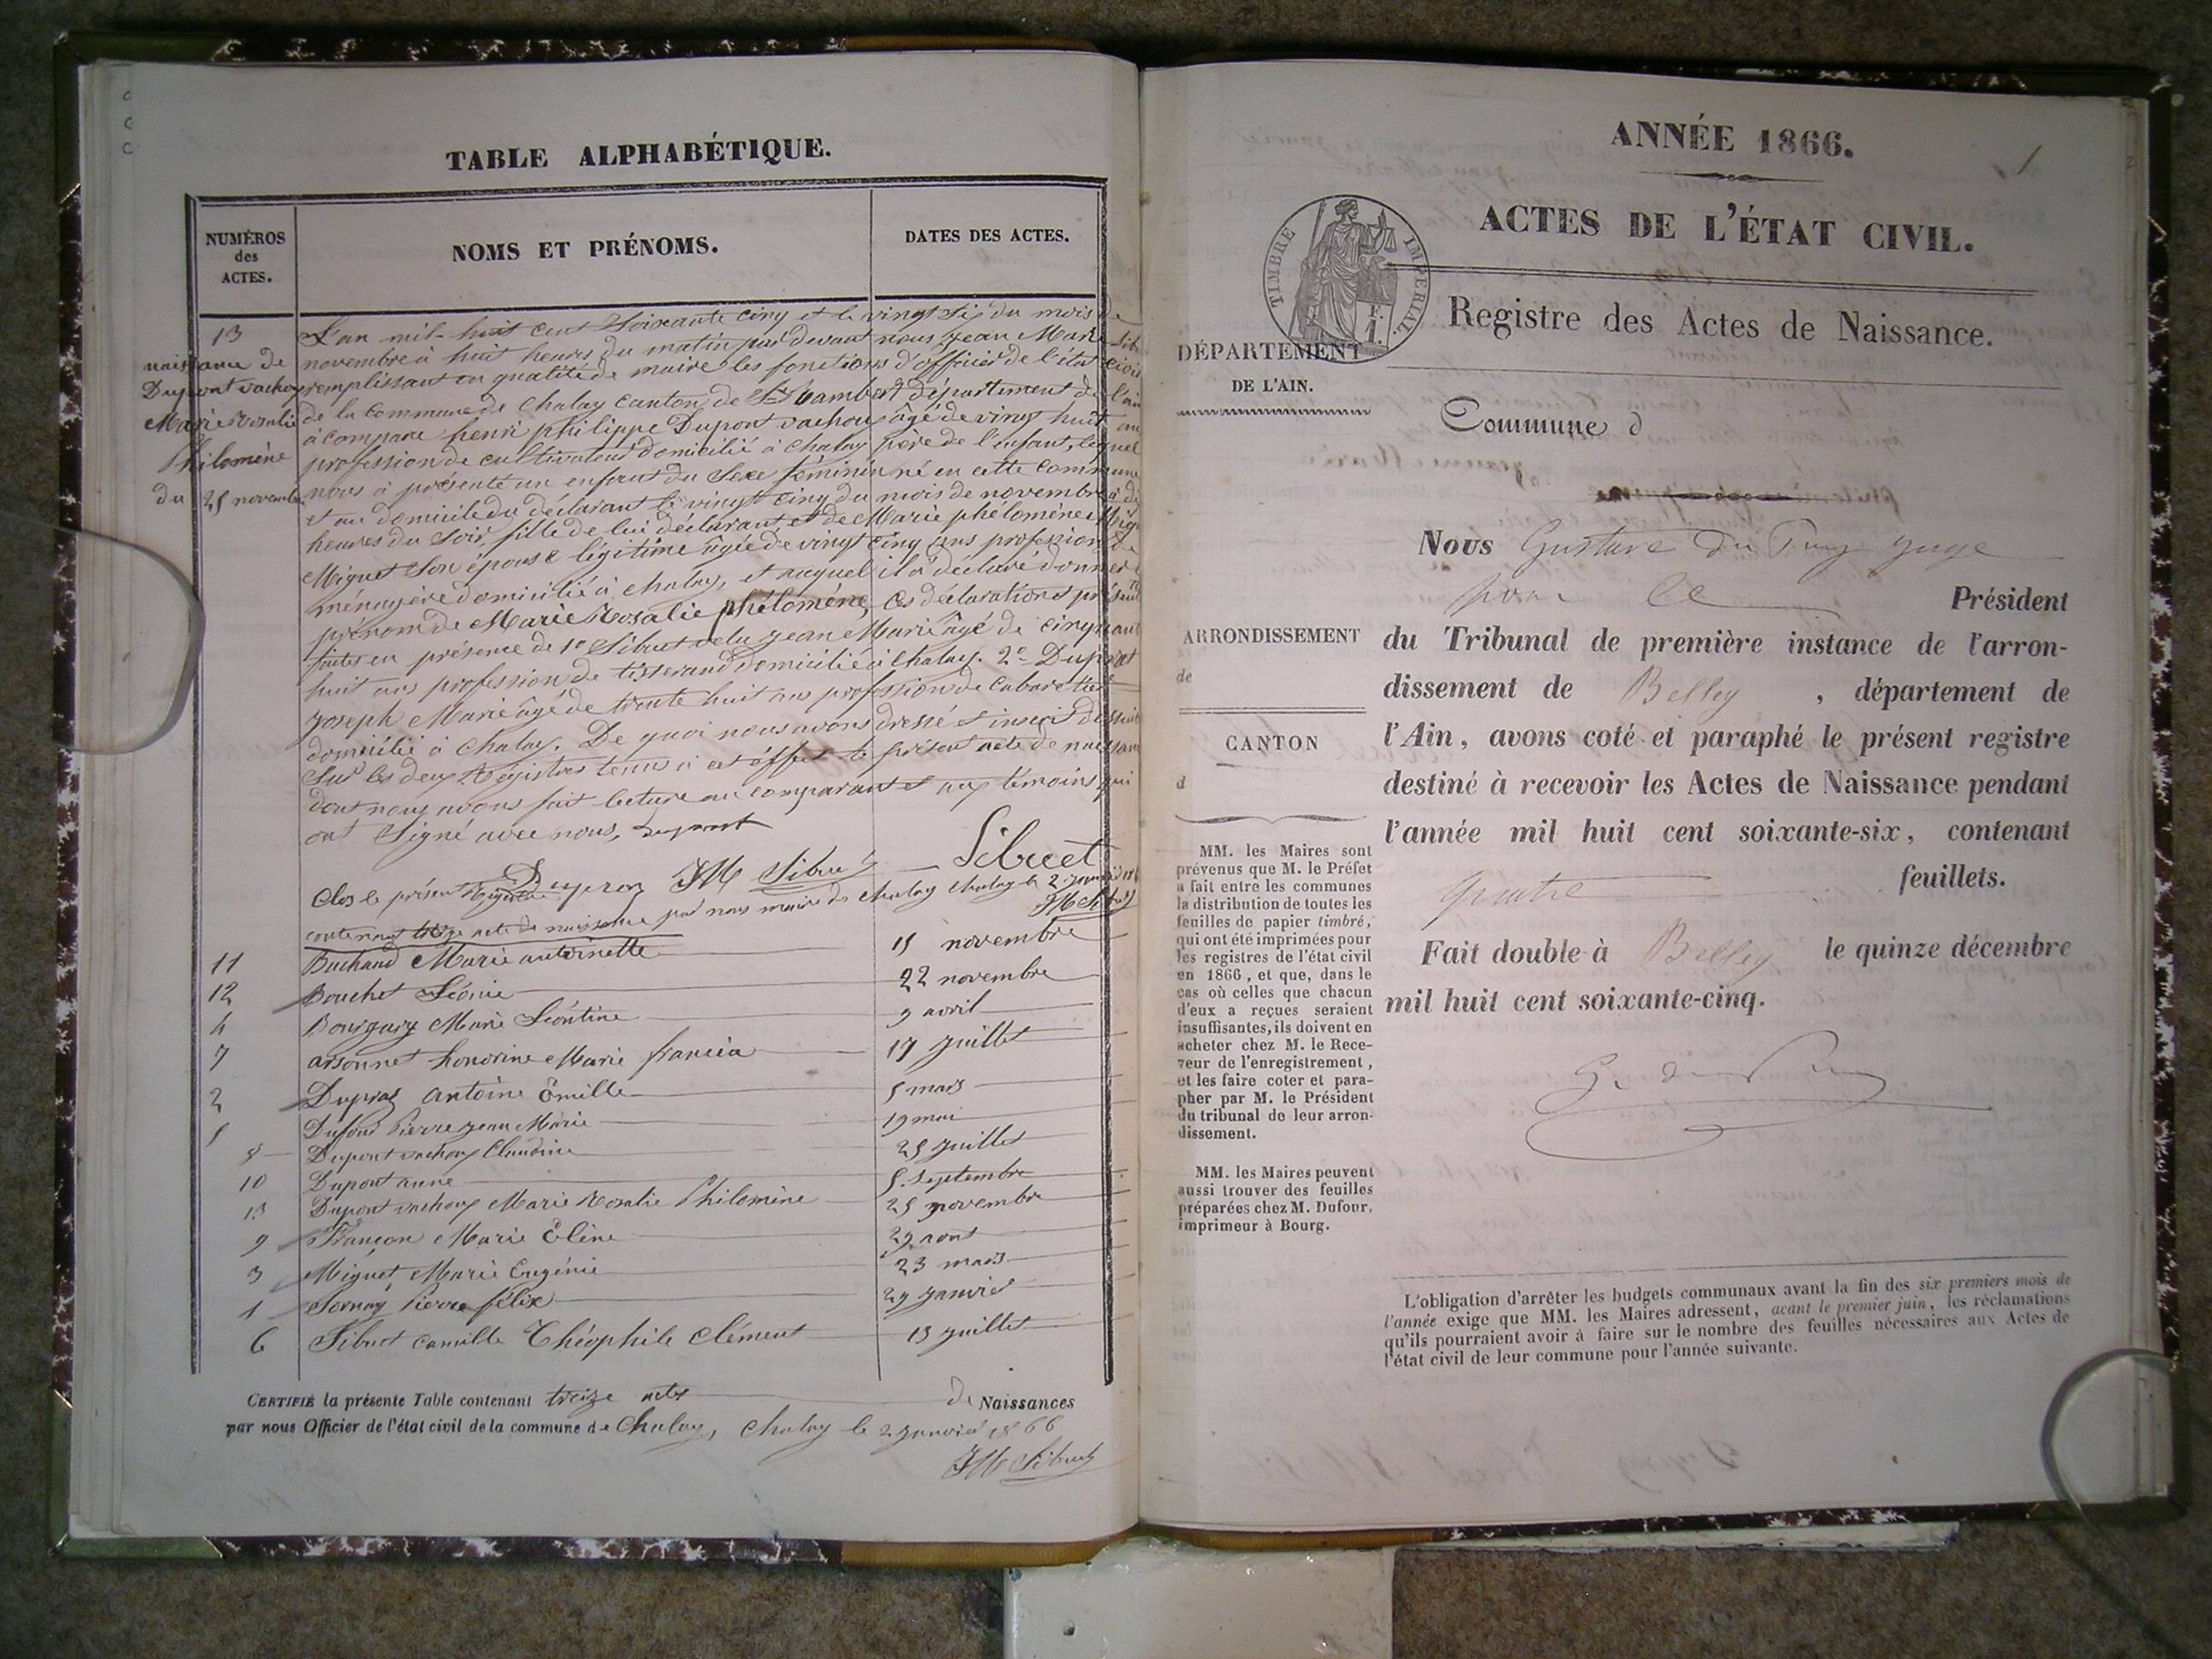 TABLE ALPHABÉTIQUE.
NUMÉROS
des
ACTES.
NOMS ET PRÉNOMS.
DATES DES ACTES.
13
naissance de
Dupont vachoux
Marie Rosalie
Philomène
du 25 novembre
L'an mil-huit cent soixante cinq et le vingt six du mois de
novembre à huit heures du matin par devant nous Jean Marie Sib
remplissant en qualité de maire les fonctions d'officier de l'état civil
de la commune de Chaley canton de St Rambert département de l'ain
à comparu henri philippe Dupont vachoux âgé de vingt huit ans
profession de cultivateur domicilié à chaley père de l'enfant, lequel
nous à présenté un enfant du Sexe féminin né en cette commune
et au domicile du déclarant le vingt cinq du mois de novembre à di
heures du soir, fille de lui déclarant et de Marie phélomène
Miguet son épouse légitime âgée de vingt cinq ans profession de
ménagère domicilié à chaley, et auquel il à déclaré donner
prénom de Marie Rosalie phéloméne, Ces déclarations et
faites en présence de 1º Sibuet Jean Marie âgé de cinquante
huit ans profession de tisserand domicilié à Chaley. 2º Dupraz
Joseph Marie âgé de trente huit ans profession de Cabaretier
domicilié à Chaley. De quoi nous avons dressé et inscrit de suite
sur les deux Régistres tenus à cet éffet le présent acte de naissance
dont nous avons fait lecture au comparant et aux témoins qui
ont Signé avec nous, Dupont
Dupraz JM Sibuet Sibuet
Clos le présent Régistre
contenant treize acte de naissance par nous maire de Chaley Chaley le 2 janvier
JM Sibuet
11 Buchaud Marie antoinette 15 novembre
12 Bouchet Léonie 22 novembre
4 Marie Léontine 9 avril
7 arsonnet honorine Marie francia 17 juillet
2 Dupraz Antoine Émille 5 mars
5 Dufour Pierre jean Marie 19 mai
8 Dupont vachoux Claudine 25 juillet
10 Dupont anne 5 Septembre
13 Dupont vachoux Marie Rosalie Philomène 25 novembre
9 Françon Marie Éline 29 aout
3 Miguet Marie Eugénie 23 mars
1 Sornay Pierre félix 29 janvier
6 Sibuet Camille Théophile Clément 13 juillet
CERTIFIÉ la présente Table contenant treize actes de Naissances
par nous Officier de l'état civil de la commune de Chaley, Chaley le 2 janvier 1866
JM Sibuet
1
ANNÉE 1866.
ACTES DE L'ÉTAT CIVIL.
TIMBRE IMPÉRIAL.
Registre des Actes de Naissance.
DÉPARTEMENT
DE L'AIN.
Commune d
Nous Gustave Du Puy juge
pour le Président
ARRONDISSEMENT
de
CANTON
d
du Tribunal de première instance de l'arron-
dissement de Belley, département de
l'Ain, avons coté et paraphé le présent registre
destiné à recevoir les Actes de Naissance pendant
l'année mil huit cent soixante-six, contenant
quatre feuillets.
Fait double à Belley le quinze décembre
mil huit cent soixante-cinq.
G. du Puy
MM. les Maires sont
prévenus que M. le Préfet
a fait entre les communes
la distribution de toutes les
feuilles de papier timbré,
qui ont été imprimées pour
les registres de l'état civil
en 1866, et que, dans le
cas où celles que chacun
d'eux a reçues seraient
insuffisantes, ils doivent en
acheter chez M. le Rece-
veur de l'enregistrement,
et les faire coter et para-
pher par M. le Président
du tribunal de leur arron-
dissement.
MM. les Maires peuvent
aussi trouver des feuilles
préparées chez M. Dufour,
imprimeur à Bourg.
L'obligation d'arrêter les budgets communaux avant la fin des six premiers mois de
l'année exige que MM. les Maires adressent, avant le premier juin, les réclamations
qu'ils pourraient avoir à faire sur le nombre des feuilles nécessaires aux Actes de
l'état civil de leur commune pour l'année suivante.